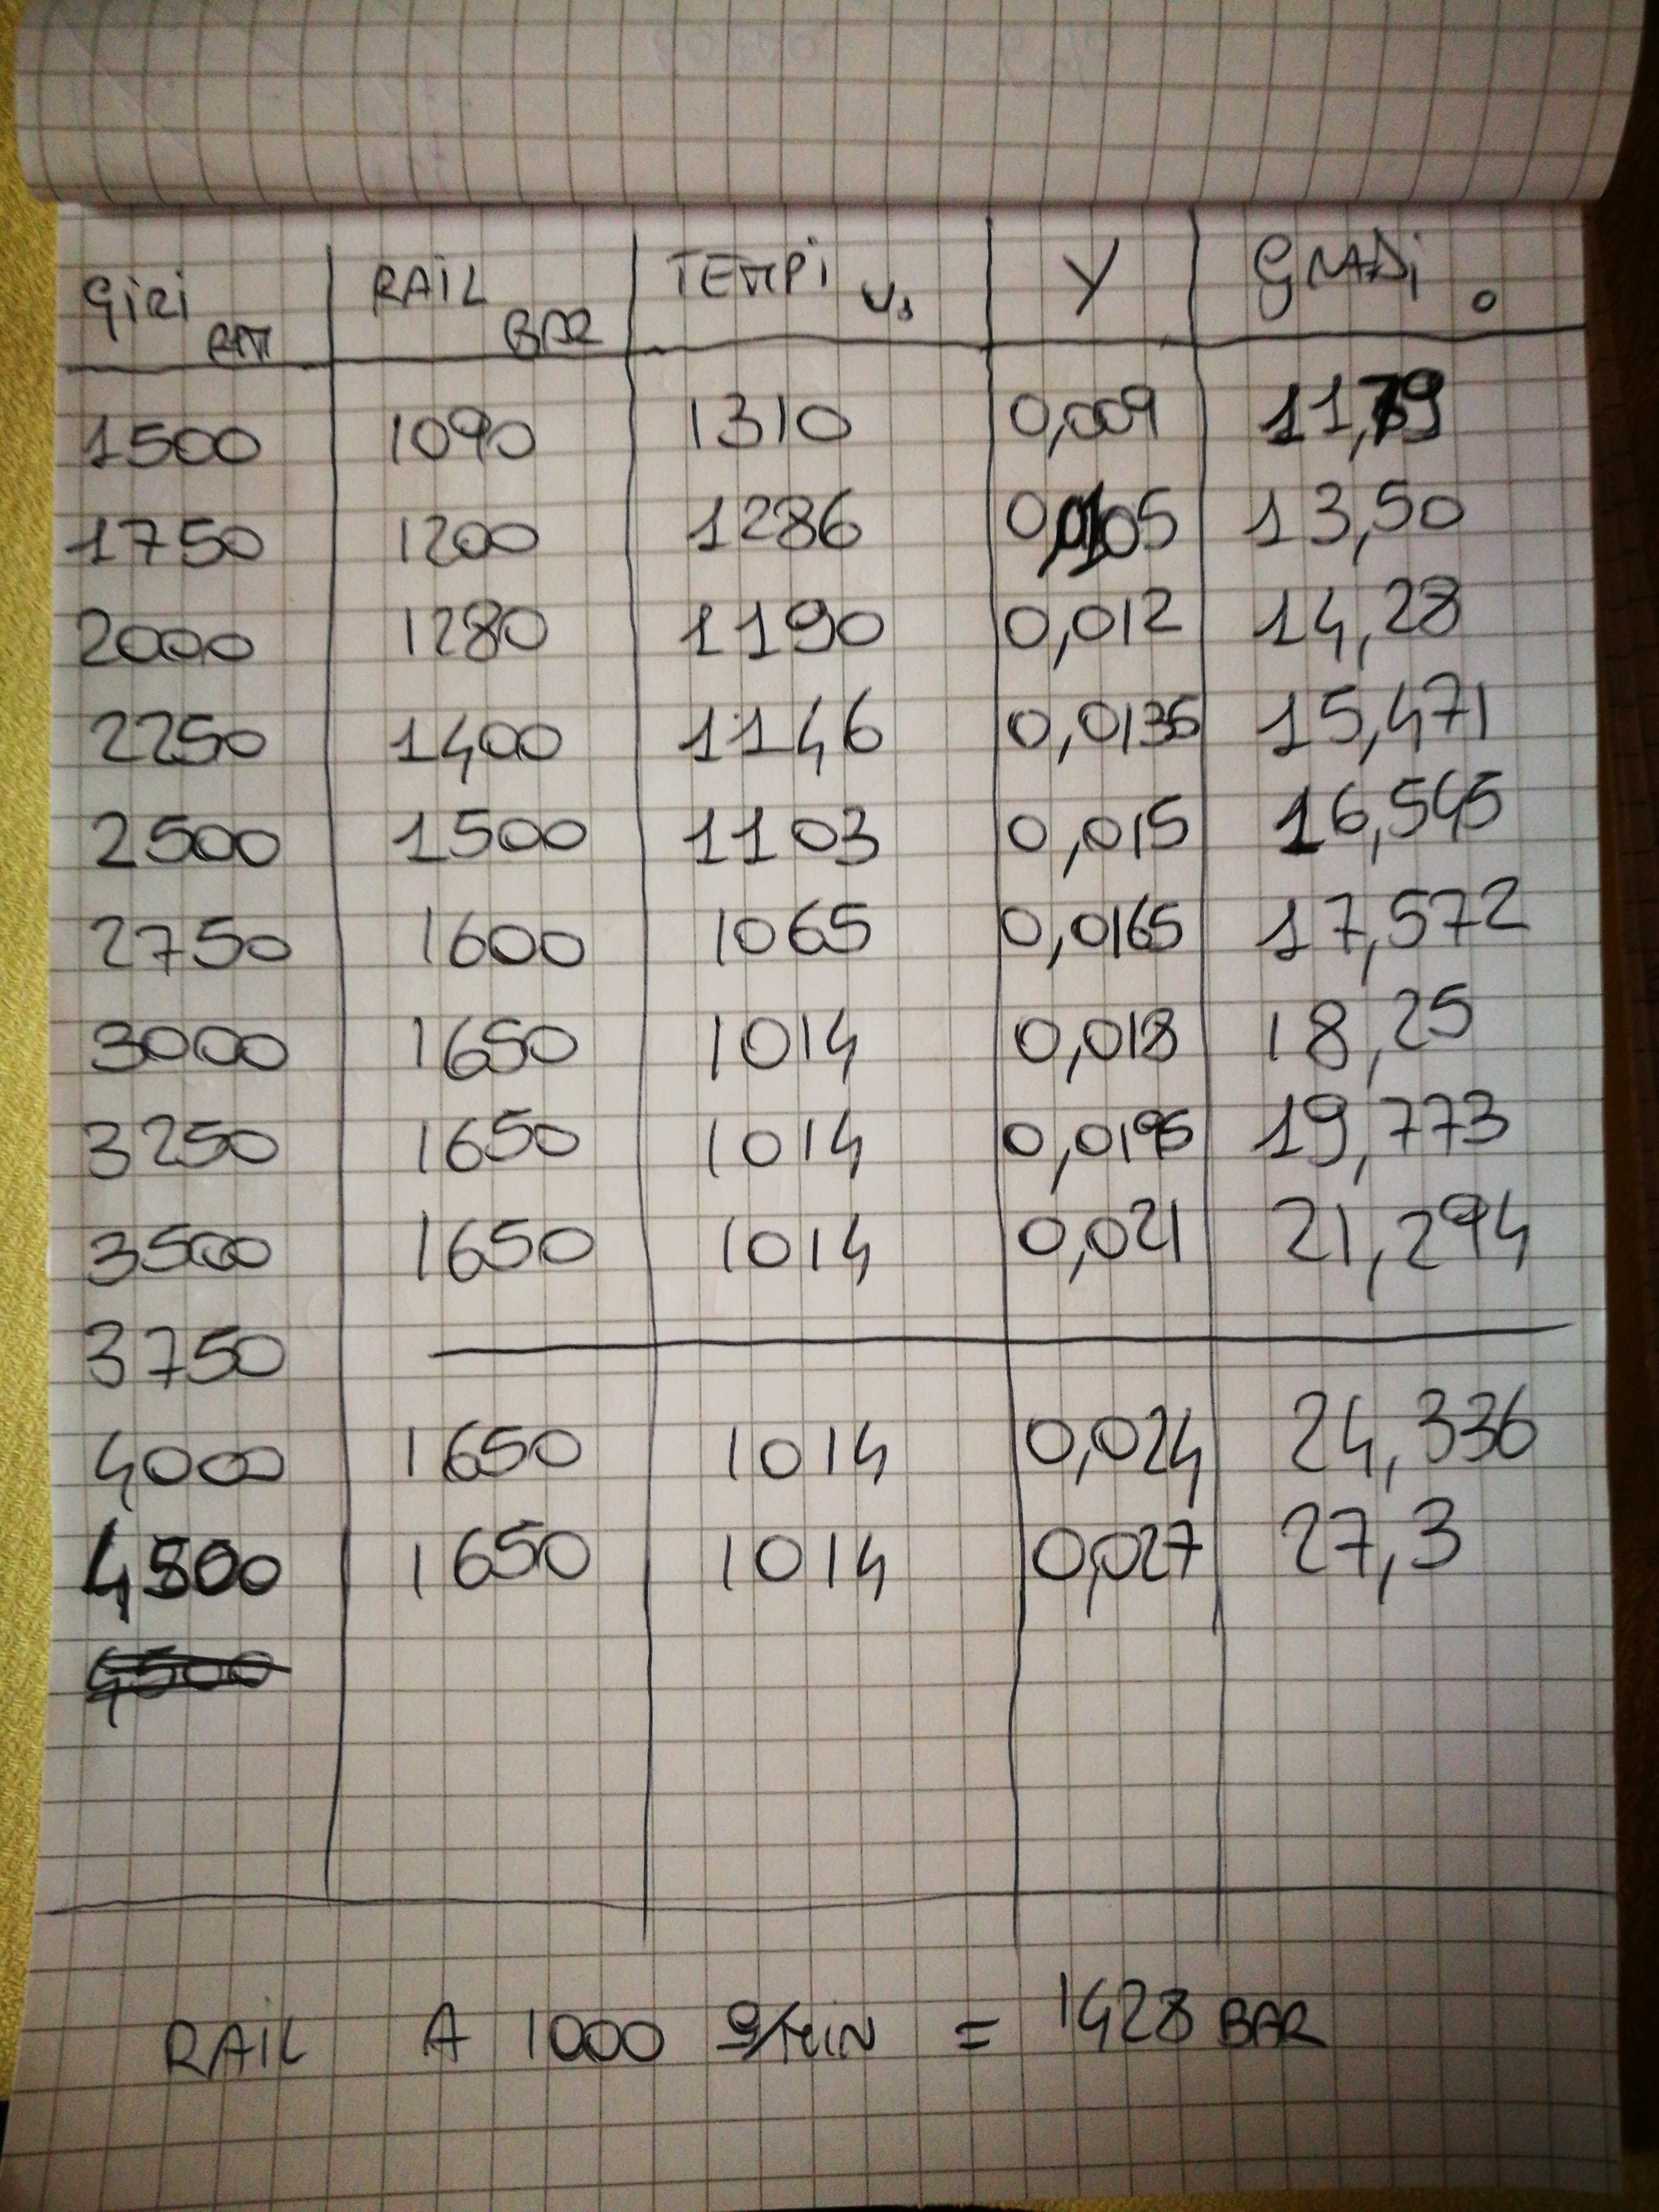 GIRI RPM RAIL BAR TEMPI us Y GRADI °
1500 1090 1310 0,009 11,79
1750 1200 1286 0,0105 13,50
2000 1280 1190 0,012 14,28
2250 1400 1146 0,0135 15,471
2500 1500 1103 0,015 16,545
2750 1600 1065 0,0165 17,572
3000 1650 1014 0,018 18,25
3250 1650 1014 0,0195 19,773
3500 1650 1014 0,021 21,294
3750
4000 1650 1014 0,024 24,336
4500 1650 1014 0,027 27,3
4500
RAIL A 1000 g/MIN = 1428 BAR